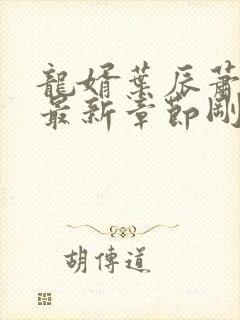 龍婿葉辰蕭
最新章節剛
胡傳道